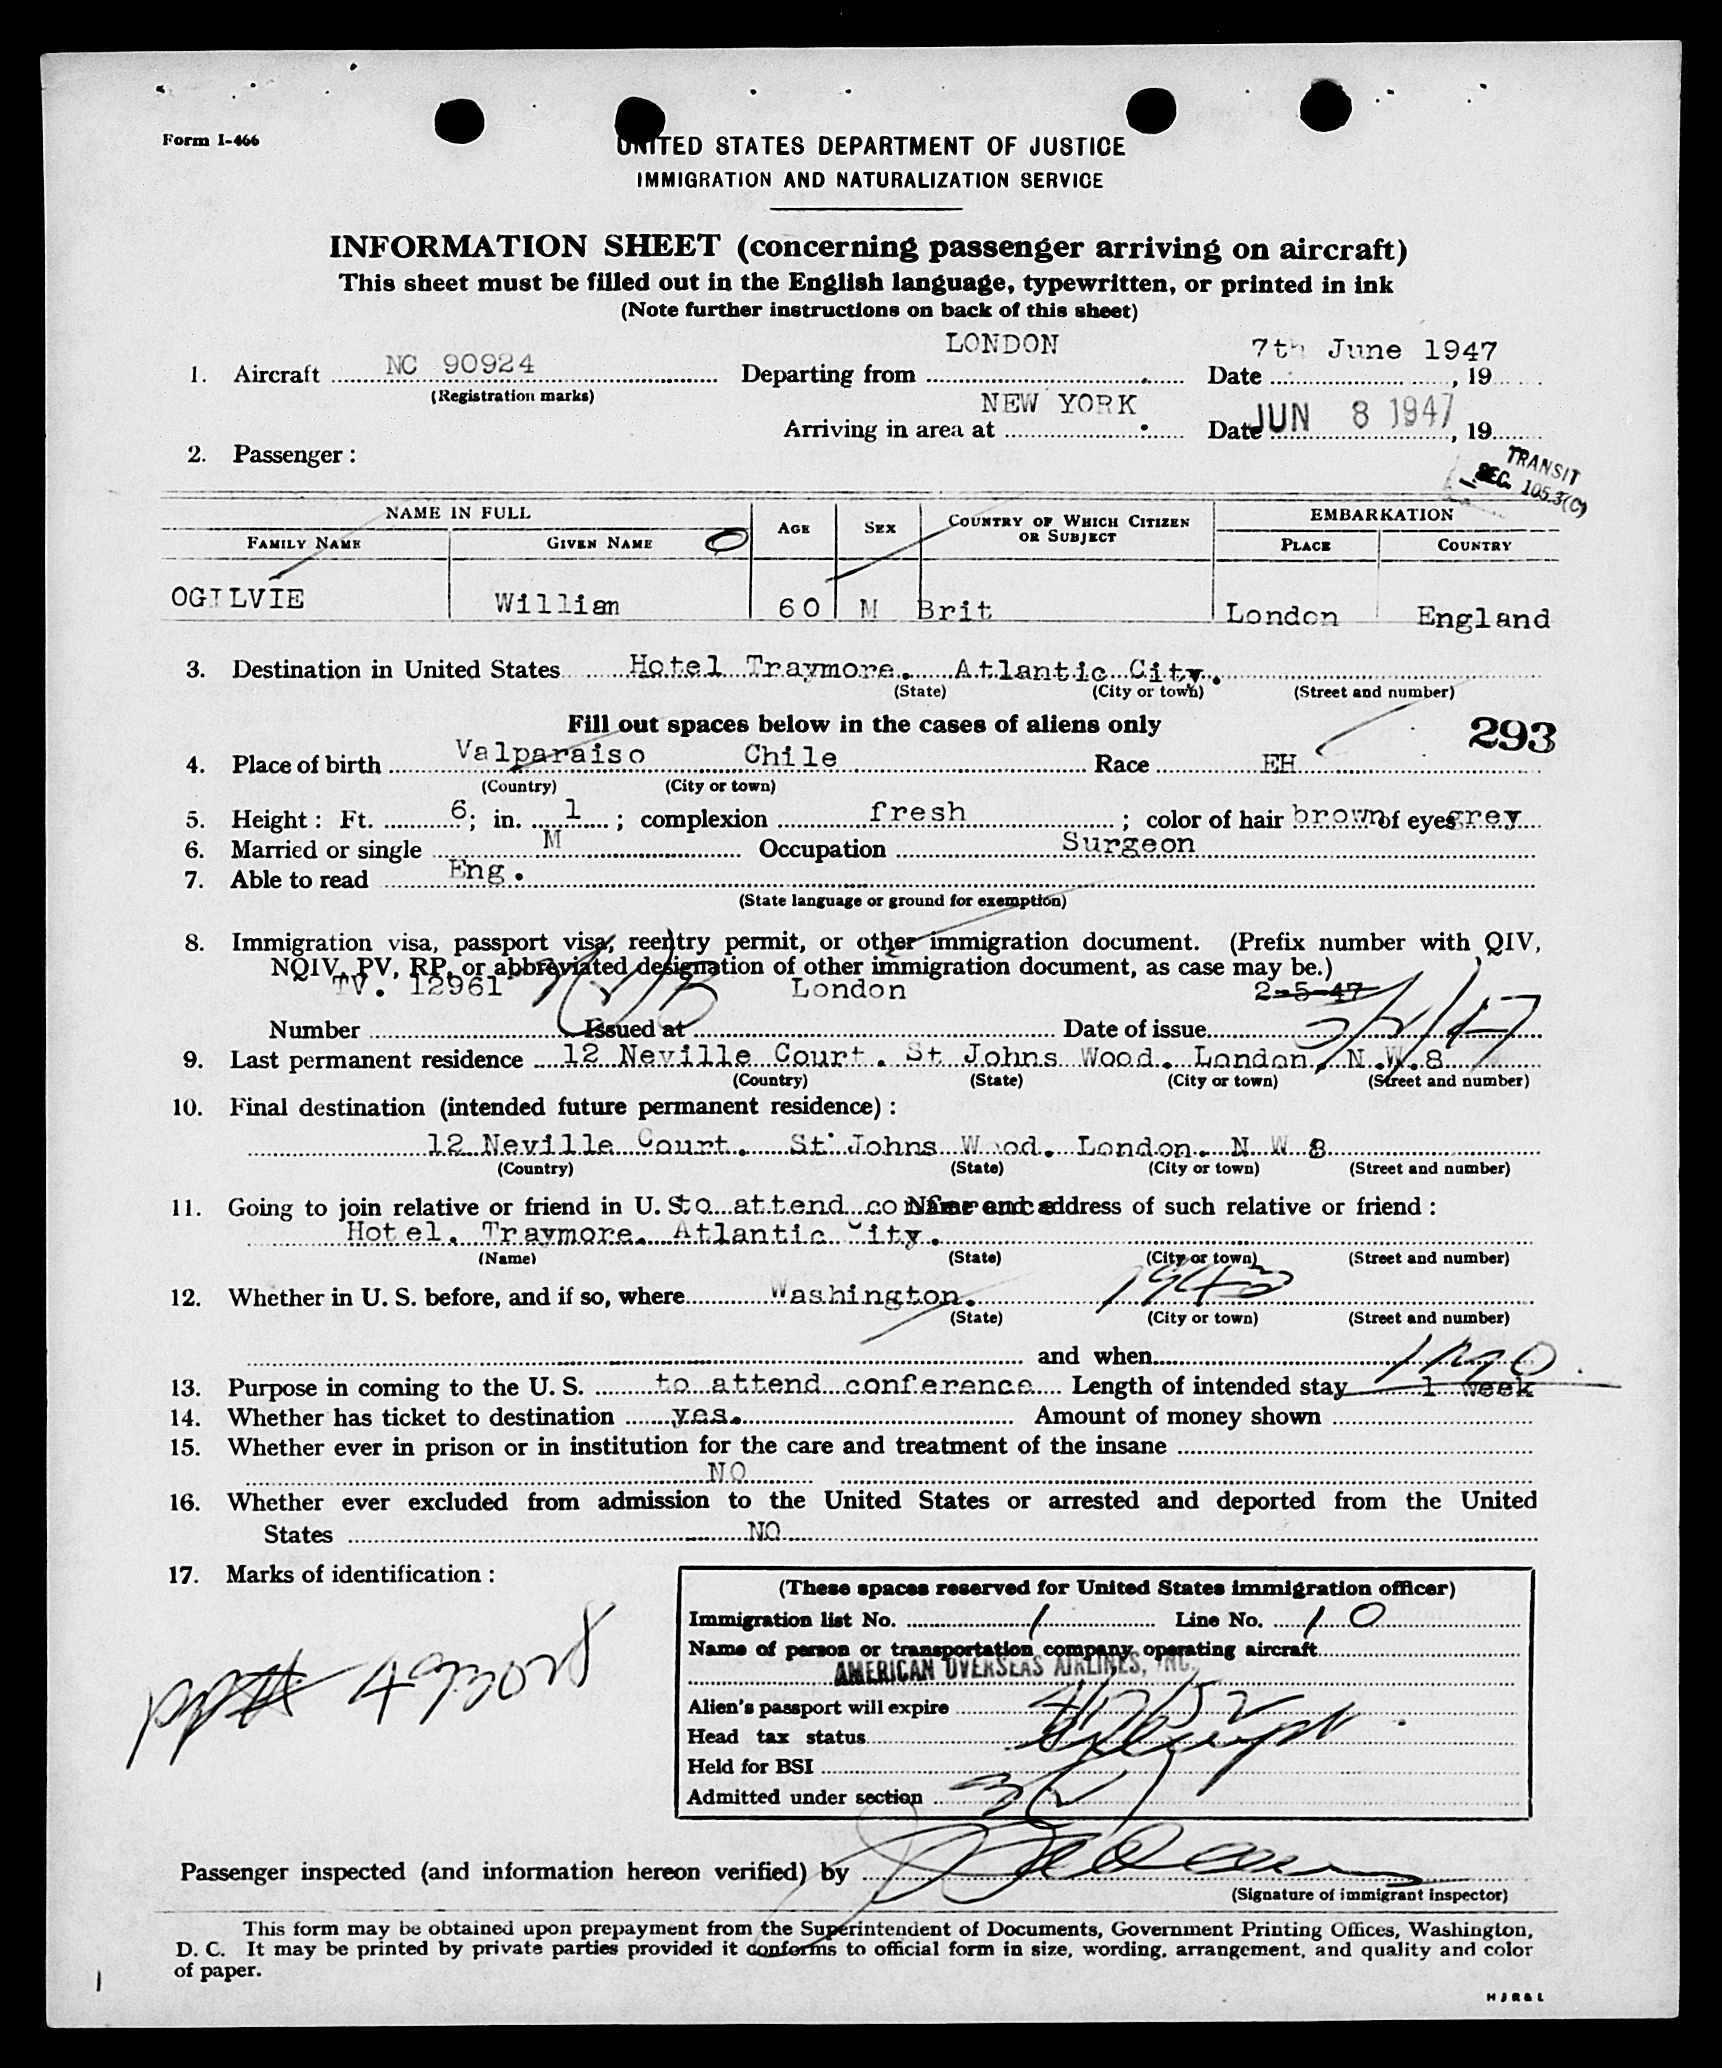 Form I-466
UNITED STATES DEPARTMENT OF JUSTICE
IMMIGRATION AND NATURALIZATION SERVICE
INFORMATION SHEET (concerning passenger arriving on aircraft)
This sheet must be filled out in the English language, typewritten, or printed in ink
(Note further instructions on back of this sheet)
1. Aircraft NC 90924 Departing from LONDON Date 7th June 1947, 19
(Registration marks)
Arriving in area at NEW YORK Date JUN 8 1947, 19
2. Passenger:
TRANSIT
SEC. 105.3(C)
NAME IN FULL AGE SEX COUNTRY OF WHICH CITIZEN OR SUBJECT EMBARKATION
FAMILY NAME GIVEN NAME PLACE COUNTRY
OGILVIE William 60 M Brit London England
3. Destination in United States Hotel Traymore. Atlantic City.
(State) (City or town) (Street and number)
Fill out spaces below in the cases of aliens only
293
4. Place of birth Valparaiso Chile Race EH
(Country) (City or town)
5. Height: Ft. 6; in. 1; complexion fresh; color of hair brown of eyes grey
6. Married or single M Occupation Surgeon
7. Able to read Eng.
(State language or ground for exemption)
8. Immigration visa, passport visa, reentry permit, or other immigration document. (Prefix number with QIV,
NQIV, PV, RP, or abbreviated designation of other immigration document, as case may be.)
TV. 12961 London 2-5-47
Number Issued at Date of issue 5/2/47
9. Last permanent residence 12 Neville Court. St Johns Wood. London, N.W.8
(Country) (State) (City or town) (Street and number)
10. Final destination (intended future permanent residence):
12 Neville Court. St Johns Wood. London. N W 8
(Country) (State) (City or town) (Street and number)
11. Going to join relative or friend in U. S. to attend conference Name and address of such relative or friend:
Hotel. Traymore. Atlantic City.
(Name) (State) (City or town) (Street and number)
12. Whether in U. S. before, and if so, where Washington. 1943
(State) (City or town) (Street and number)
and when
13. Purpose in coming to the U. S. to attend conference Length of intended stay 1 week
14. Whether has ticket to destination yes. Amount of money shown
15. Whether ever in prison or in institution for the care and treatment of the insane
NO
16. Whether ever excluded from admission to the United States or arrested and deported from the United
States NO
17. Marks of identification:
(These spaces reserved for United States immigration officer)
Immigration list No. 1 Line No. 10
Name of person or transportation company operating aircraft
AMERICAN OVERSEAS AIRLINES, INC.
Alien's passport will expire
Head tax status
Held for BSI
Admitted under section
Passenger inspected (and information hereon verified) by
(Signature of immigrant inspector)
This form may be obtained upon prepayment from the Superintendent of Documents, Government Printing Offices, Washington,
D. C. It may be printed by private parties provided it conforms to official form in size, wording, arrangement, and quality and color
of paper.
HJR&L